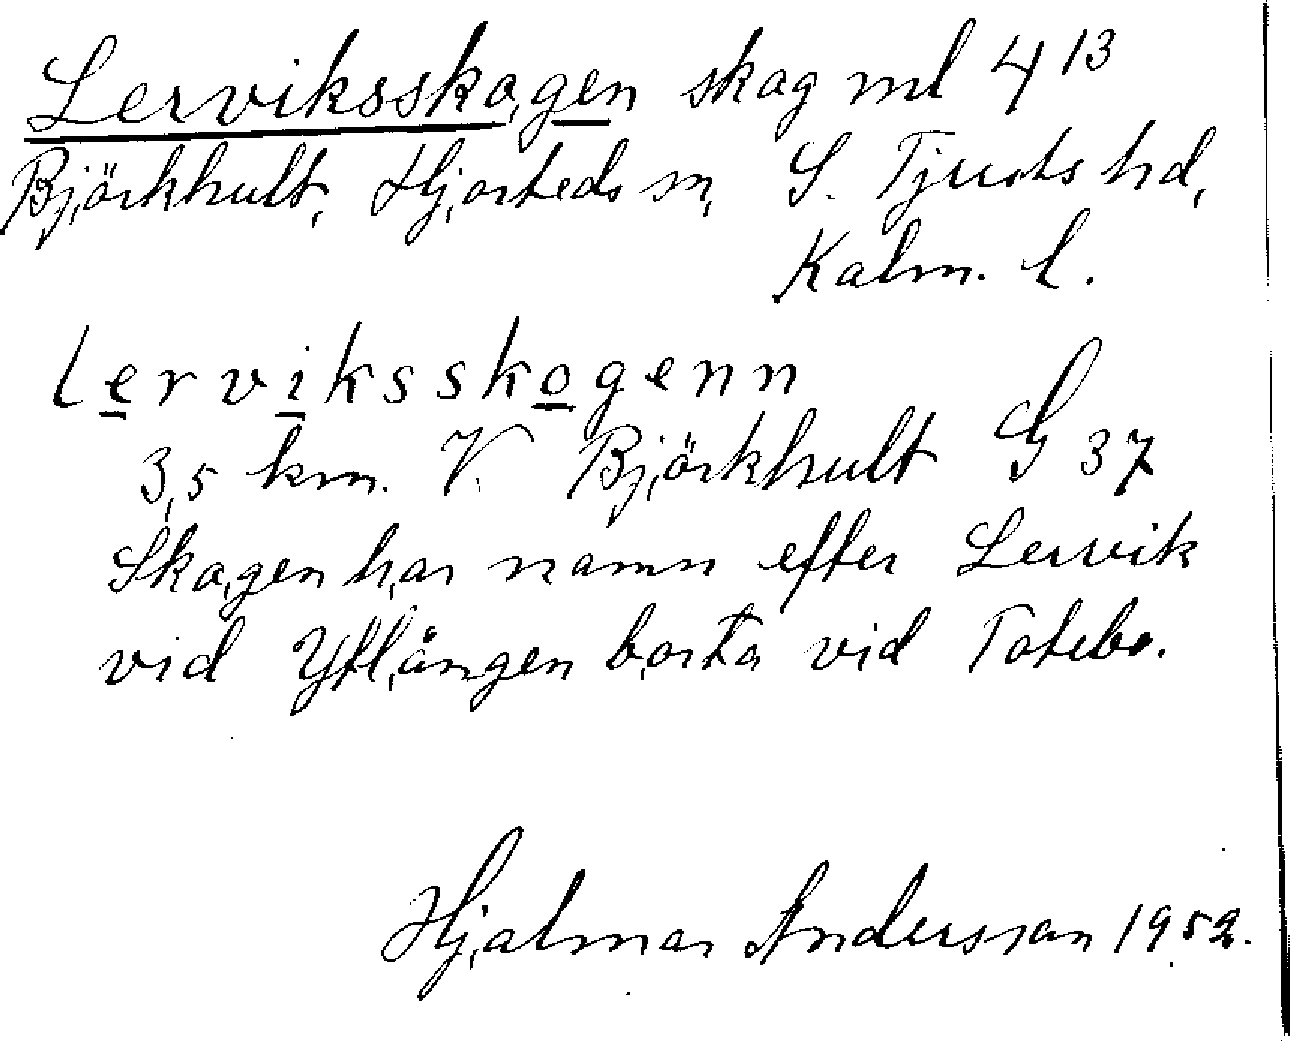 Lerviksskogen skog ml 4 13
Björkhult, Hjorteds sn, S. Tjusts hd,
Kalm. l.
lerviksskogenn
3,5 km. V. Björkhult G 37
Skogen har namn efter Lervik
vid Yxlången borta vid Totebo.
Hjalmar Andersson 1952.